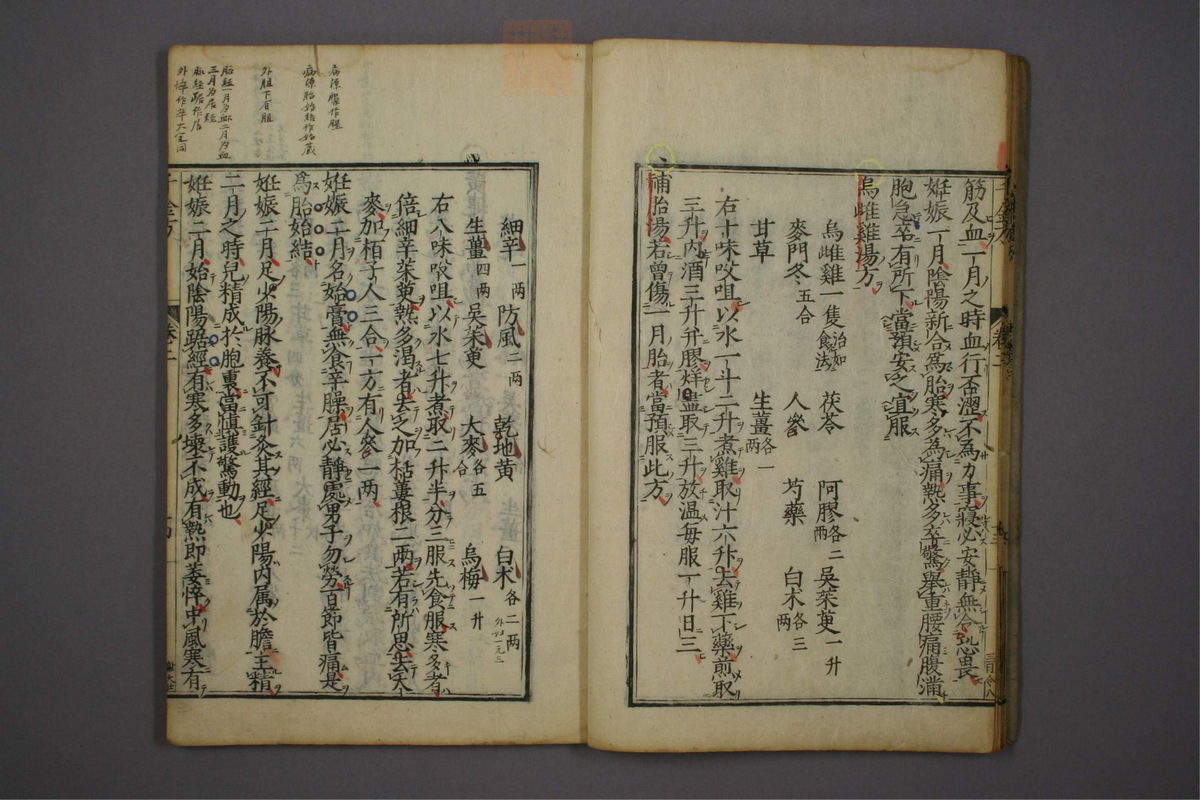 筋及血一月之時血行否澀不為力事寢必安靜無令恐畏
妊娠一月陰陽新合為胎寒多為痛熱多卒驚舉重腰痛腹滿
胞急卒有所下當預安之宜服
烏雌雞湯方
烏雌雞一隻治如食法 茯苓 阿膠各二兩 吳茱萸一升
麥門冬五合 人參 芍藥 白朮各三兩
甘草 生薑各一兩
右十味㕮咀以水一斗二升煮雞取汁六升去雞下藥煎取
三升內酒三升并膠烊盡取三升放溫每服一升日三
補胎湯若曾傷一月胎者當預服此方
細辛一兩 防風二兩 乾地黃 白朮各二兩
生薑四兩 吳茱萸 大麥各五合 烏梅一升
右八味㕮咀以水七升煮取二升半分三服先食服寒多者
倍細辛茱萸熱多渴者去之加栝蔞根二兩若有所思去大
麥加栢子人三合一方有人參一兩
妊娠二月名始膏無食辛臊居必靜處男子勿勞百節皆痛是
為胎始結
妊娠二月足少陽脉養不可針灸其經足少陽內属於膽主精
二月之時兒精成於胞裏當慎護驚動也
妊娠二月始陰陽踞經有寒多壞不成有熱即萎悴中風寒有
千金方
卷二
病源臊作腥
病源胎始結作始藏
外胆下有胆
三月为居經
脉經踞作居